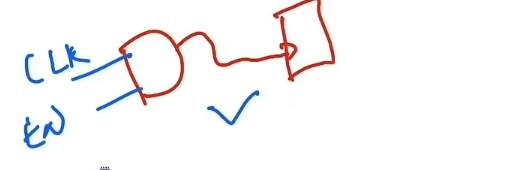 CLK
EN